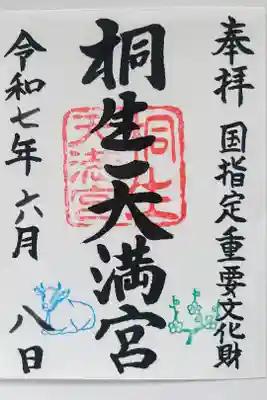 奉拝
国指定重要文化財
桐生天満宮
令和七年六月
八日